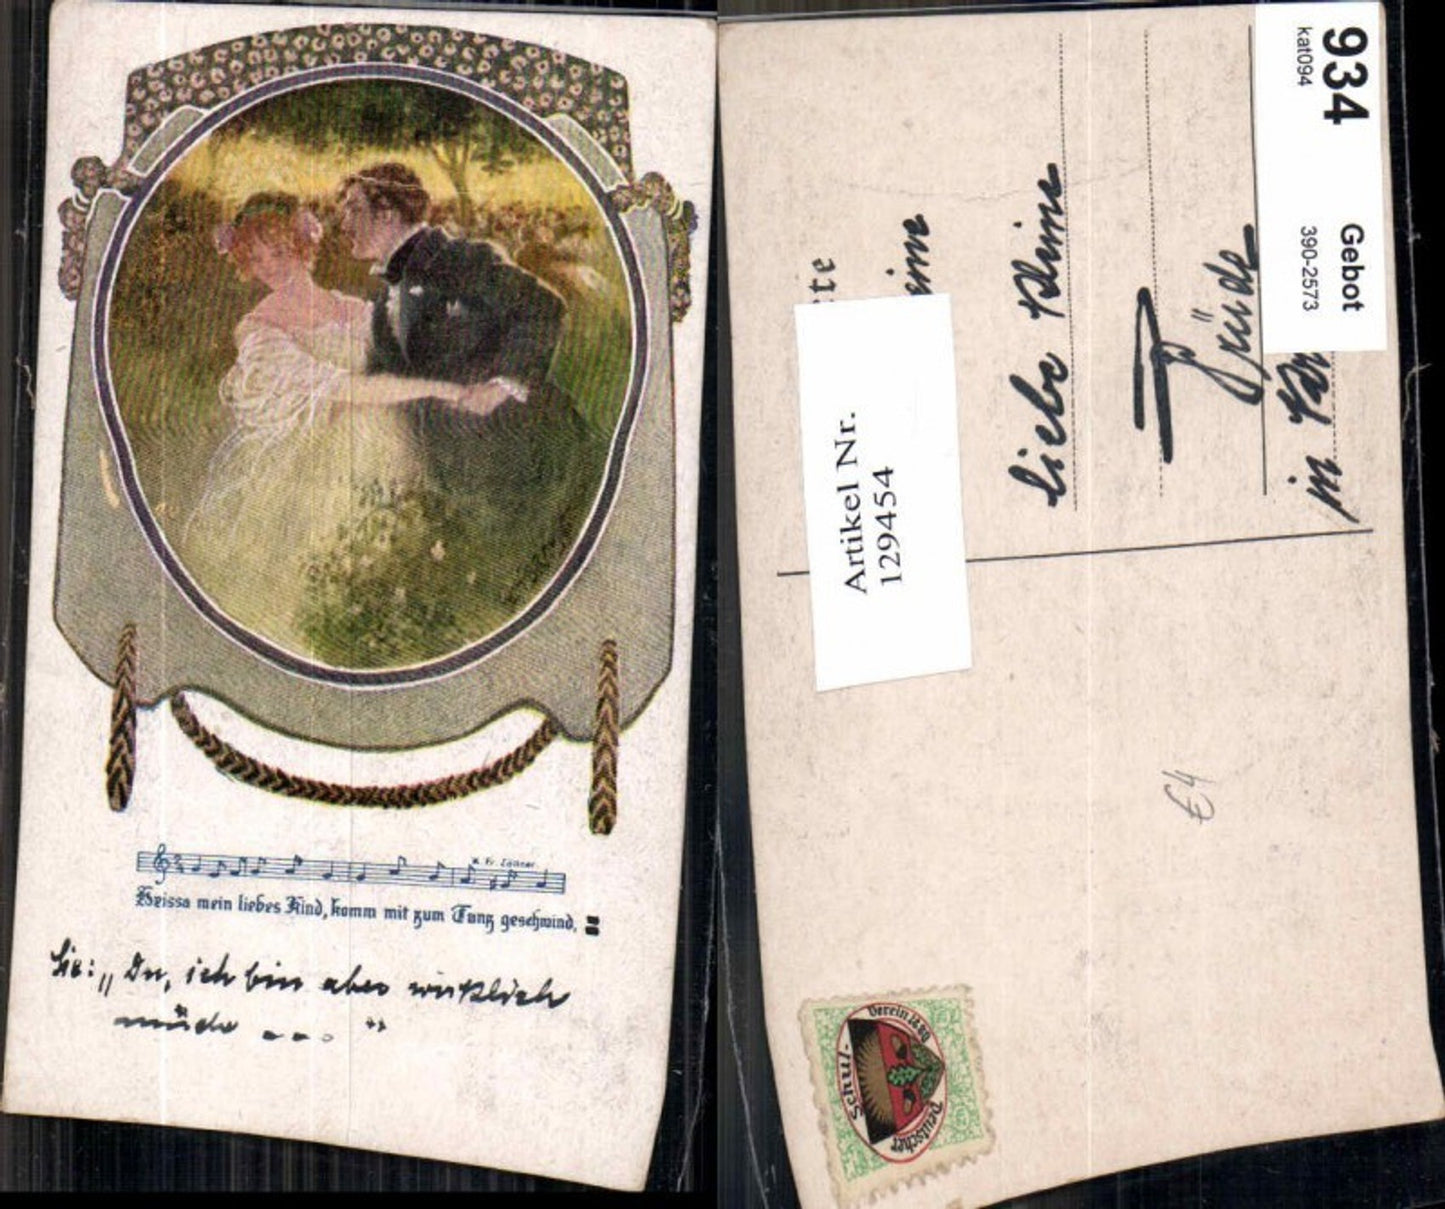 K. Fr. Zöllner.
Heissa mein liebes Kind, komm mit zum Tanz geschwind,
Sie: „Du, ich bin aber wirklich
müde ... "
934
kat094
Gebot
390-2573
Artikel Nr.
129454
liebe
in
€4
Verein 1880
Schul-
Deutscher